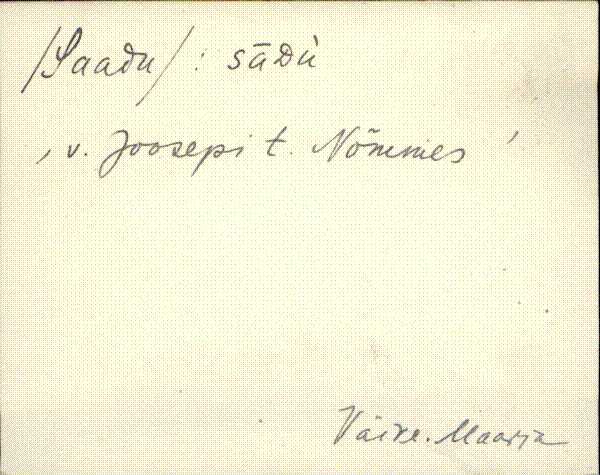 /Saadu/ : sāDù
, v. Joosepi t. Nõmmes '
Väike-Maarja